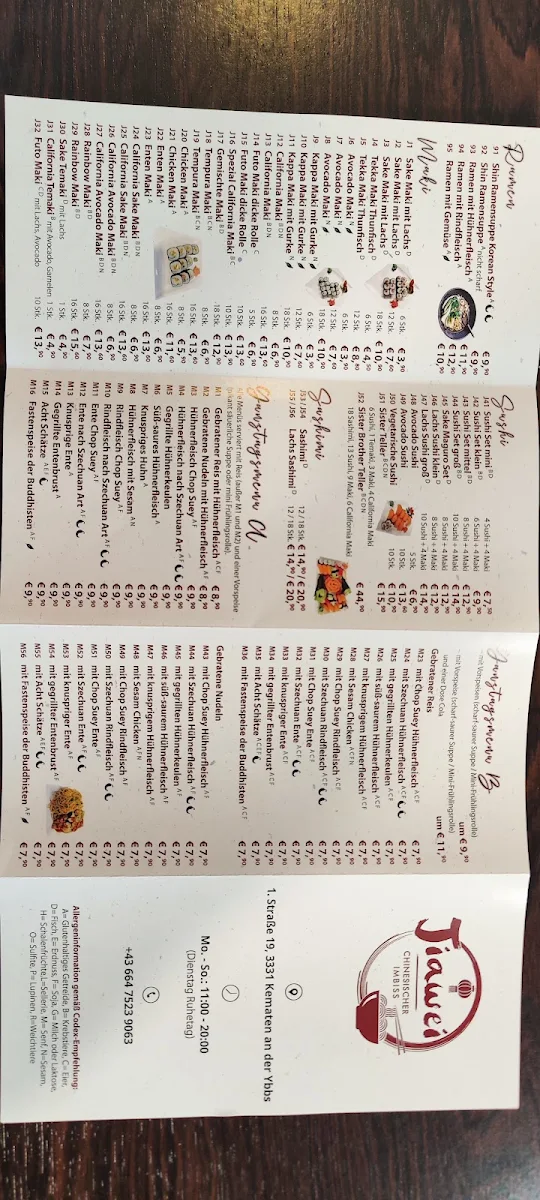 Ramen
91 Shin Ramensuppe Korean Style A € 9,90
92 Shin Ramensuppe A nicht scharf € 9,90
93 Ramen mit Hühnerfleisch A € 11,90
94 Ramen mit Rindfleisch A € 12,90
95 Ramen mit Gemüse A € 10,90
Maki
J1 Sake Maki mit Lachs D 6 Stk. € 3,90
J2 Sake Maki mit Lachs D 12 Stk. € 7,60
J3 Sake Maki mit Lachs D 18 Stk. € 10,90
J4 Tekka Maki Thunfisch D 6 Stk. € 4,50
J5 Tekka Maki Thunfisch D 12 Stk. € 8,80
J6 Avocado Maki N 6 Stk. € 3,90
J7 Avocado Maki N 12 Stk. € 7,60
J8 Avocado Maki N 18 Stk. € 10,90
J9 Kappa Maki mit Gurke N 6 Stk. € 3,90
J10 Kappa Maki mit Gurke N 12 Stk. € 7,60
J11 Kappa Maki mit Gurke N 18 Stk. € 10,90
J12 California Maki BDN 8 Stk. € 6,90
J13 California Maki BDN 16 Stk. € 13,60
J14 Futo Maki dicke Rolle C 5 Stk. € 6,90
J15 Futo Maki dicke Rolle C 10 Stk. € 13,60
J16 Spezial California Maki BC 10 Stk. € 13,90
J17 Gemischte Maki BD 18 Stk. € 12,90
J18 Tempura Maki BCN 8 Stk. € 6,90
J19 Tempura Maki BCN 16 Stk. € 13,60
J20 Chicken Maki A 8 Stk.
J21 Chicken Maki A 16 Stk.
J22 Enten Maki A 8 Stk. € 6,90
J23 Enten Maki A 16 Stk. € 13,60
J24 California Sake Maki BDN 8 Stk. € 6,90
J25 California Sake Maki BDN 16 Stk. € 13,60
J26 California Avocado Maki BDN 8 Stk. € 6,90
J27 California Avocado Maki BDN 16 Stk. € 13,60
J28 Rainbow Maki BD 8 Stk. € 7,90
J29 Rainbow Maki BD 16 Stk. € 15,60
J30 Sake Temaki D mit Lachs 1 Stk. € 4,90
J31 California Temaki B mit Avocado, Garnelen 1 Stk. € 4,90
J32 Futo Maki CD mit Lachs, Avocado 10 Stk. € 13,90
Sushi
J41 Sushi Set mini BD 4 Sushi + 4 Maki € 7,50
J42 Sushi Set klein BD 6 Sushi + 4 Maki € 9,90
J43 Sushi Set mittel BD 8 Sushi + 4 Maki € 12,90
J44 Sushi Set groß BD 10 Sushi + 4 Maki € 14,90
J45 Sake Maguro Set D 8 Sushi + 4 Maki
J46 Lachs Sushi klein D 8 Sushi + 4 Maki € 12,90
J47 Lachs Sushi groß D 10 Sushi + 4 Maki € 14,90
J48 Avocado Sushi 5 Stk. € 6,90
J49 Avocado Sushi 10 Stk. € 13,60
J50 Inari Tasche Sushi 10 Stk.
J51 Sister Teller BCDN € 15,90
6 Sushi, 1 Temaki, 3 Maki, 4 California Maki
J52 Sister Brother Teller BCDN € 44,90
18 Sashimi, 13 Sushi, 9 Maki, 6 California Maki
Sashimi
J53 / J54 Sashimi D 12 / 18 Stk. € 14,90 / € 20,90
J55 / J56 Lachs Sashimi D 12 / 18 Stk. € 14,90 / € 20,90
Menüs serviert mit Reis (außer M1 und M2) und einer Vorspeise
(pikant säuerliche Suppe oder mini Frühlingsrolle).
M1 Gebratener Reis mit Hühnerfleisch ACF € 8,90
M2 Gebratene Nudeln mit Hühnerfleisch AF € 8,90
M3 Hühnerfleisch Chop Suey AF € 9,90
M4 Hühnerfleisch nach Szechuan Art AF € 9,90
M5 Gegrillte Hühnerkeulen € 9,90
M6 Süß-saures Hühnerfleisch A € 9,90
M7 Knuspriges Huhn A € 9,90
M8 Hühnerfleisch mit Sesam AN € 9,90
M9 Rindfleisch Chop Suey AF € 9,90
M10 Rindfleisch nach Szechuan Art AF € 9,90
M11 Ente Chop Suey AF € 9,90
M12 Ente nach Szechuan Art AF € 9,90
M13 Knusprige Ente A € 9,90
M14 Gegrillte Entenbrust A € 9,90
M15 Acht Schätze AEF € 9,90
M16 Fastenspeise der Buddhisten AF € 9,90
- mit Vorspeise (scharf-saurer Suppe / Mini-Frühlingsrolle) um € 9,90
- mit Vorspeise (scharf-saurer Suppe / Mini-Frühlingsrolle)
und einer Dose Cola um € 11,90
Gebratener Reis
M23 mit Chop Suey Hühnerfleisch ACF € 7,90
M24 mit Szechuan Hühnerfleisch ACF € 7,90
M25 mit gegrillten Hühnerkeulen ACF € 7,90
M26 mit süß-saurem Hühnerfleisch ACF € 7,90
M27 mit knusprigem Hühnerfleisch ACF € 7,90
M28 mit Sesam Chicken ACFN € 7,90
M29 mit Chop Suey Rindfleisch ACF € 7,90
M30 mit Szechuan Rindfleisch ACF € 7,90
M31 mit Chop Suey Ente ACF € 7,90
M32 mit Szechuan Ente ACF € 7,90
M33 mit knuspriger Ente ACF € 7,90
M34 mit gegrillter Entenbrust ACF € 7,90
M35 mit Acht Schätze ACEF € 7,90
M36 mit Fastenspeise der Buddhisten ACF € 7,90
Gebratene Nudeln
M43 mit Chop Suey Hühnerfleisch AF € 7,90
M44 mit Szechuan Hühnerfleisch AF € 7,90
M45 mit gegrillten Hühnerkeulen AF € 7,90
M46 mit süß-saurem Hühnerfleisch AF € 7,90
M47 mit knusprigem Hühnerfleisch AF € 7,90
M48 mit Sesam Chicken AFN € 7,90
M49 mit Chop Suey Rindfleisch AF € 7,90
M50 mit Szechuan Rindfleisch AF € 7,90
M51 mit Chop Suey Ente AF € 7,90
M52 mit Szechuan Ente AF € 7,90
M53 mit knuspriger Ente AF € 7,90
M54 mit gegrillter Entenbrust AF € 7,90
M55 mit Acht Schätze AEF € 7,90
M56 mit Fastenspeise der Buddhisten AF € 7,90
Jiawei
CHINESISCHER
IMBISS
1. Straße 19, 3331 Kematen an der Ybbs
Mo. - So.: 11:00 - 20:00
(Dienstag Ruhetag)
+43 664 7523 9063
Allergeninformation gemäß Codex-Empfehlung:
A= Glutenhaltiges Getreide, B= Krebstiere, C= Eier,
D= Fisch, E= Erdnuss, F= Soja, G= Milch oder Laktose,
H= Schalenfrüchte, L=Sellerie, M= Senf, N=Sesam,
O= Sulfite, P= Lupinen, R=Weichtiere